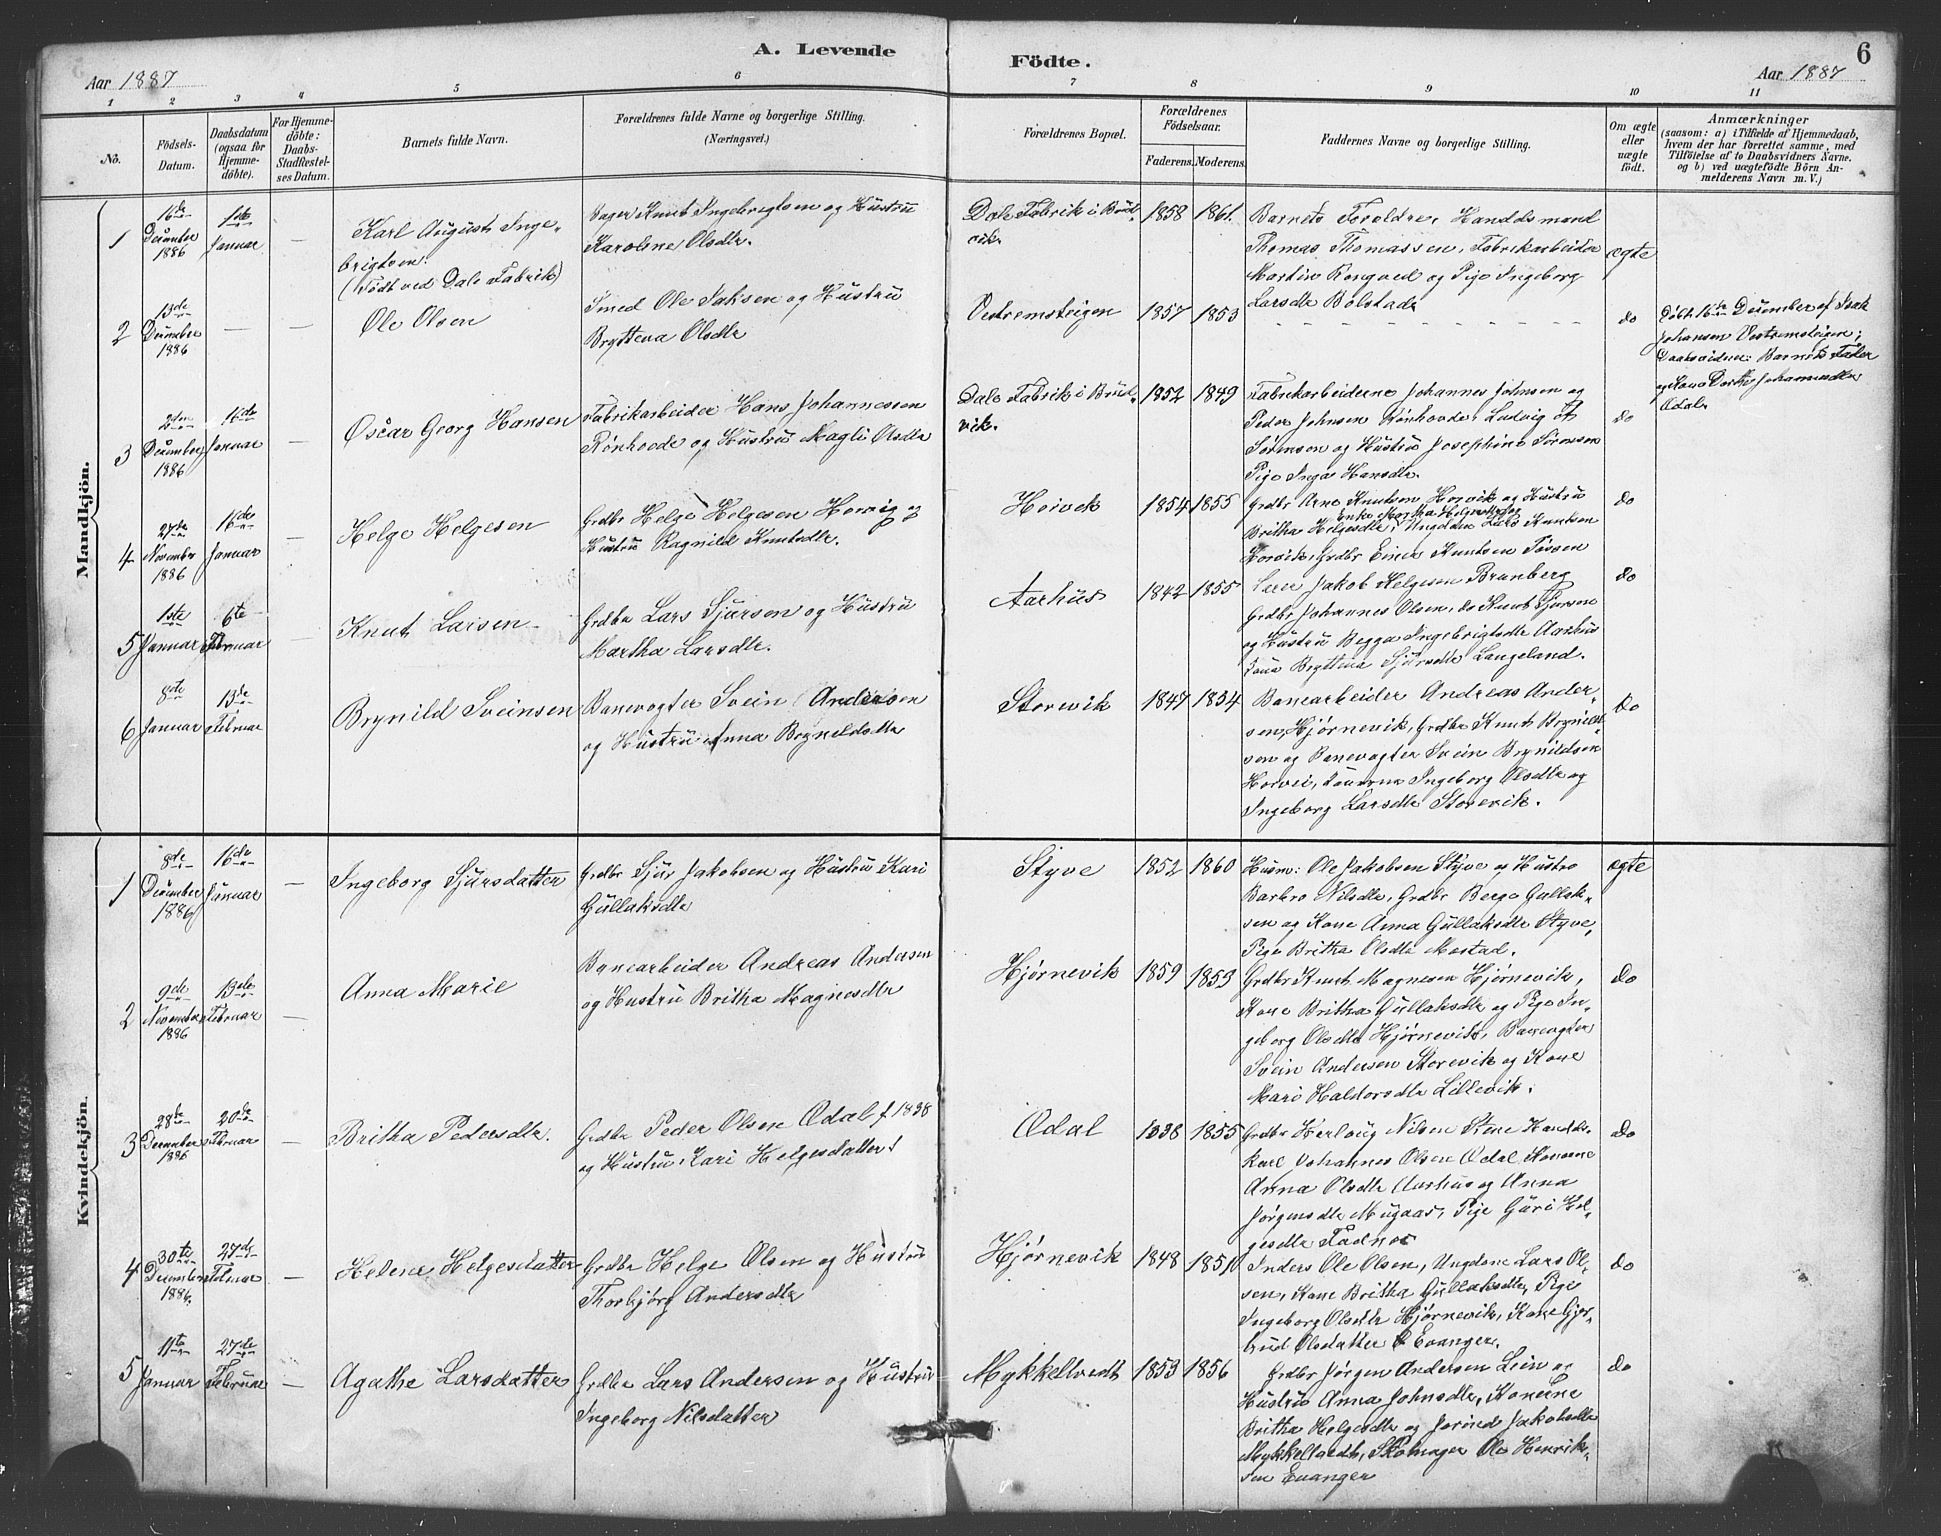 A. Levende Födte.
6
Aar 1887
Aar 1887
1 2 3 4 5 6 7 8 9 10 11
No.
Födsels-Datum.
Daabsdatum (ogsaa for Hjemme-döbte).
For Hjemme-döbte: Daabs-Stadfæstel-ses Datum.
Barnets fulde Navn.
Forældrenes fulde Navne og borgerlige Stilling.
(Næringsvei.)
Forældrenes Bopæl.
Forældrenes Födselsaar.
Faderens. Moderens.
Faddernes Navne og borgerlige Stilling.
Om ægte eller uægte födt.
Anmærkninger
(saasom: a) i Tilfælde af Hjemmedaab,
hvem der har forrettet samme, med
Tilföielse af to Daabsvidners Navne.
og b) ved uægtefödte Börn An-
melderens Navn m. V.)
Mandkjön.
1
16de December 1886
1ste Januar
—
Karl August Inge-
brigtsen.
(Född ved Dale Fabrik)
Knut Ingebrigtsen og Hustru
Karolene Olsdtr.
Dale Fabrik i Brud-
vik.
1858 1861.
Barnets Foroldre, Handdsmand
Thomas Thomassen, Fabrikarbeider
Martin Rongved og Pige Ingeborg
Larsdtr Bolstad
ægte
2
13de December 1886
— —
Ole Olsen
Smed Ole Isaksen og Hustru
Brytteva Olsdtr
Vestremsteigen
1857 1853
do
Døbt 16de December af Isak
Johansen Vestremsteigen;
Daabsvidner: Barnets Fader
og Kone Dorthe Johannesdtr
Ødal.
3
2den December 1886
16de Januar
—
Oscar Georg Hansen
Fabrikarbeider Hans Johannessen
Rönhovde og Hustru Magli Olsdtr
Dale Fabrik i Brud-
vik.
1852 1849
Fabrikarbeiderne Johannes Johnsen og
Peder Johnsen Rönhovde, Ludvig
Sörensen og Hustru Josephine Sörensen
Pige Inga Hansdtr.
do
4
27de November 1886
16de Januar
—
Helge Helgesen
Grdbr Helge Helgesen Horvig og
Hustru Ragnild Knutsdtr.
Horvek
1854 1855
Grdbr Arne Knutsen Horvik og Hustru
Enke Martha Helgesdtr
Britha Helgesdtr, Ungdom Lars Knutsen
Horvik, Grdbr Einar Knutsen Fossen
do
5
1ste Januar
6te Februar
—
Knut Larsen
Grdbr Lars Sjursen og Hustru
Martha Larsdtr.
Aarhus
1842 1855
Jakob Helgesen Brunberg
Grdbr Johannes Olsen, do Knut Sjursen
og Hustru Begga Ingebrigtsdtr Aarhus
Bryttena Sjursdtr Langeland.
do
6
8de Januar
13de Februar
Brynild Sveinsen
Banevogter Svein Andersen
og Hustru Anna Brynildsdtr
Storevik
1847 1854
Banearbeider Andreas Ander-
sen, Hjörnevik, Grdbr Knut Brynild-
sen og Banevogter Svein Brynildsen
Horvei, Konerne Ingeborg Olsdtr og
Ingeborg Larsdtr Storevik.
do
Kvindekjön.
1
8de December 1886
16de Januar
—
Ingeborg Sjursdatter
Grdbr Sjur Jakobsen og Hustru Kari
Gullaksdtr
Styve
1852 1860
Husm: Ole Jakobsen Styve og Hustro
Barbro Nilsdtr, Grdbr Berge Gullak-
sen og Kone Anna Gullaksdtr Styve,
Pige Britha Olsdtr Mostad.
ægte
2
9de November 1886
13de Februar
—
Anna Marie
Banearbeider Andreas Andersen
og Hustru Britha Magnesdtr
Hjørnevik
1859 1853
Grdbr Knut Magnesen Hjørnevik,
Kone Britha Gullaksdtr og Pige In-
geborg Olsdtr Hjørnevik, Banevogter
Svein Andersen Storevik og Kone
Mari Haldorsdtr Lillevik.
do
3
28de December 1886
20de Februar
—
Britha Pedersdtr.
Grdbr Peder Olsen Ødal f 1838
og Hustru Kari Helgesdatter
Ødal
1838 1855
Grdbr Herloug Nilsen Stene Handds-
karl Johannes Olsen Ødal, Konerne
Anna Olsdtr Aarhus og Anna
Jørgensdtr Mugaas, Pige Guri Hel-
gesdtr Fadnes
do
4
30te December 1886.
27de Februar
—
Helene Helgesdatter
Grdbr Helge Olsen og Hustru
Thorbjørg Andersdtr
Hjørnevik
1848 1851
Inders Ole Olsen, Ungdom Lars Ol-
sen, Kone Britha Gullaksdtr, Pige
Ingeborg Olsdtr Hjørnevik, Kone Gjer-
trud Olsdatter Evanger.
do
5
11te Januar
27de Februar
—
Agathe Larsdatter
Grdbr Lars Andersen og Hustru
Ingeborg Nilsdatter
Mykkeltvedt
1853 1856
Grdbr Jørgen Andersen Lein og
Hustru Anna Johnsdtr, Konerne
Britha Helgesdtr og Jorind Jakobsdtr
Mykkeltvedt, Skomager Ole Henrik-
sen Evanger
do